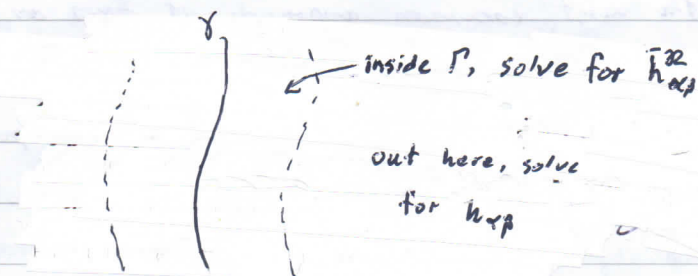 γ
inside Γ, solve for h̄^R_αβ
out here, solve
for h_αβ